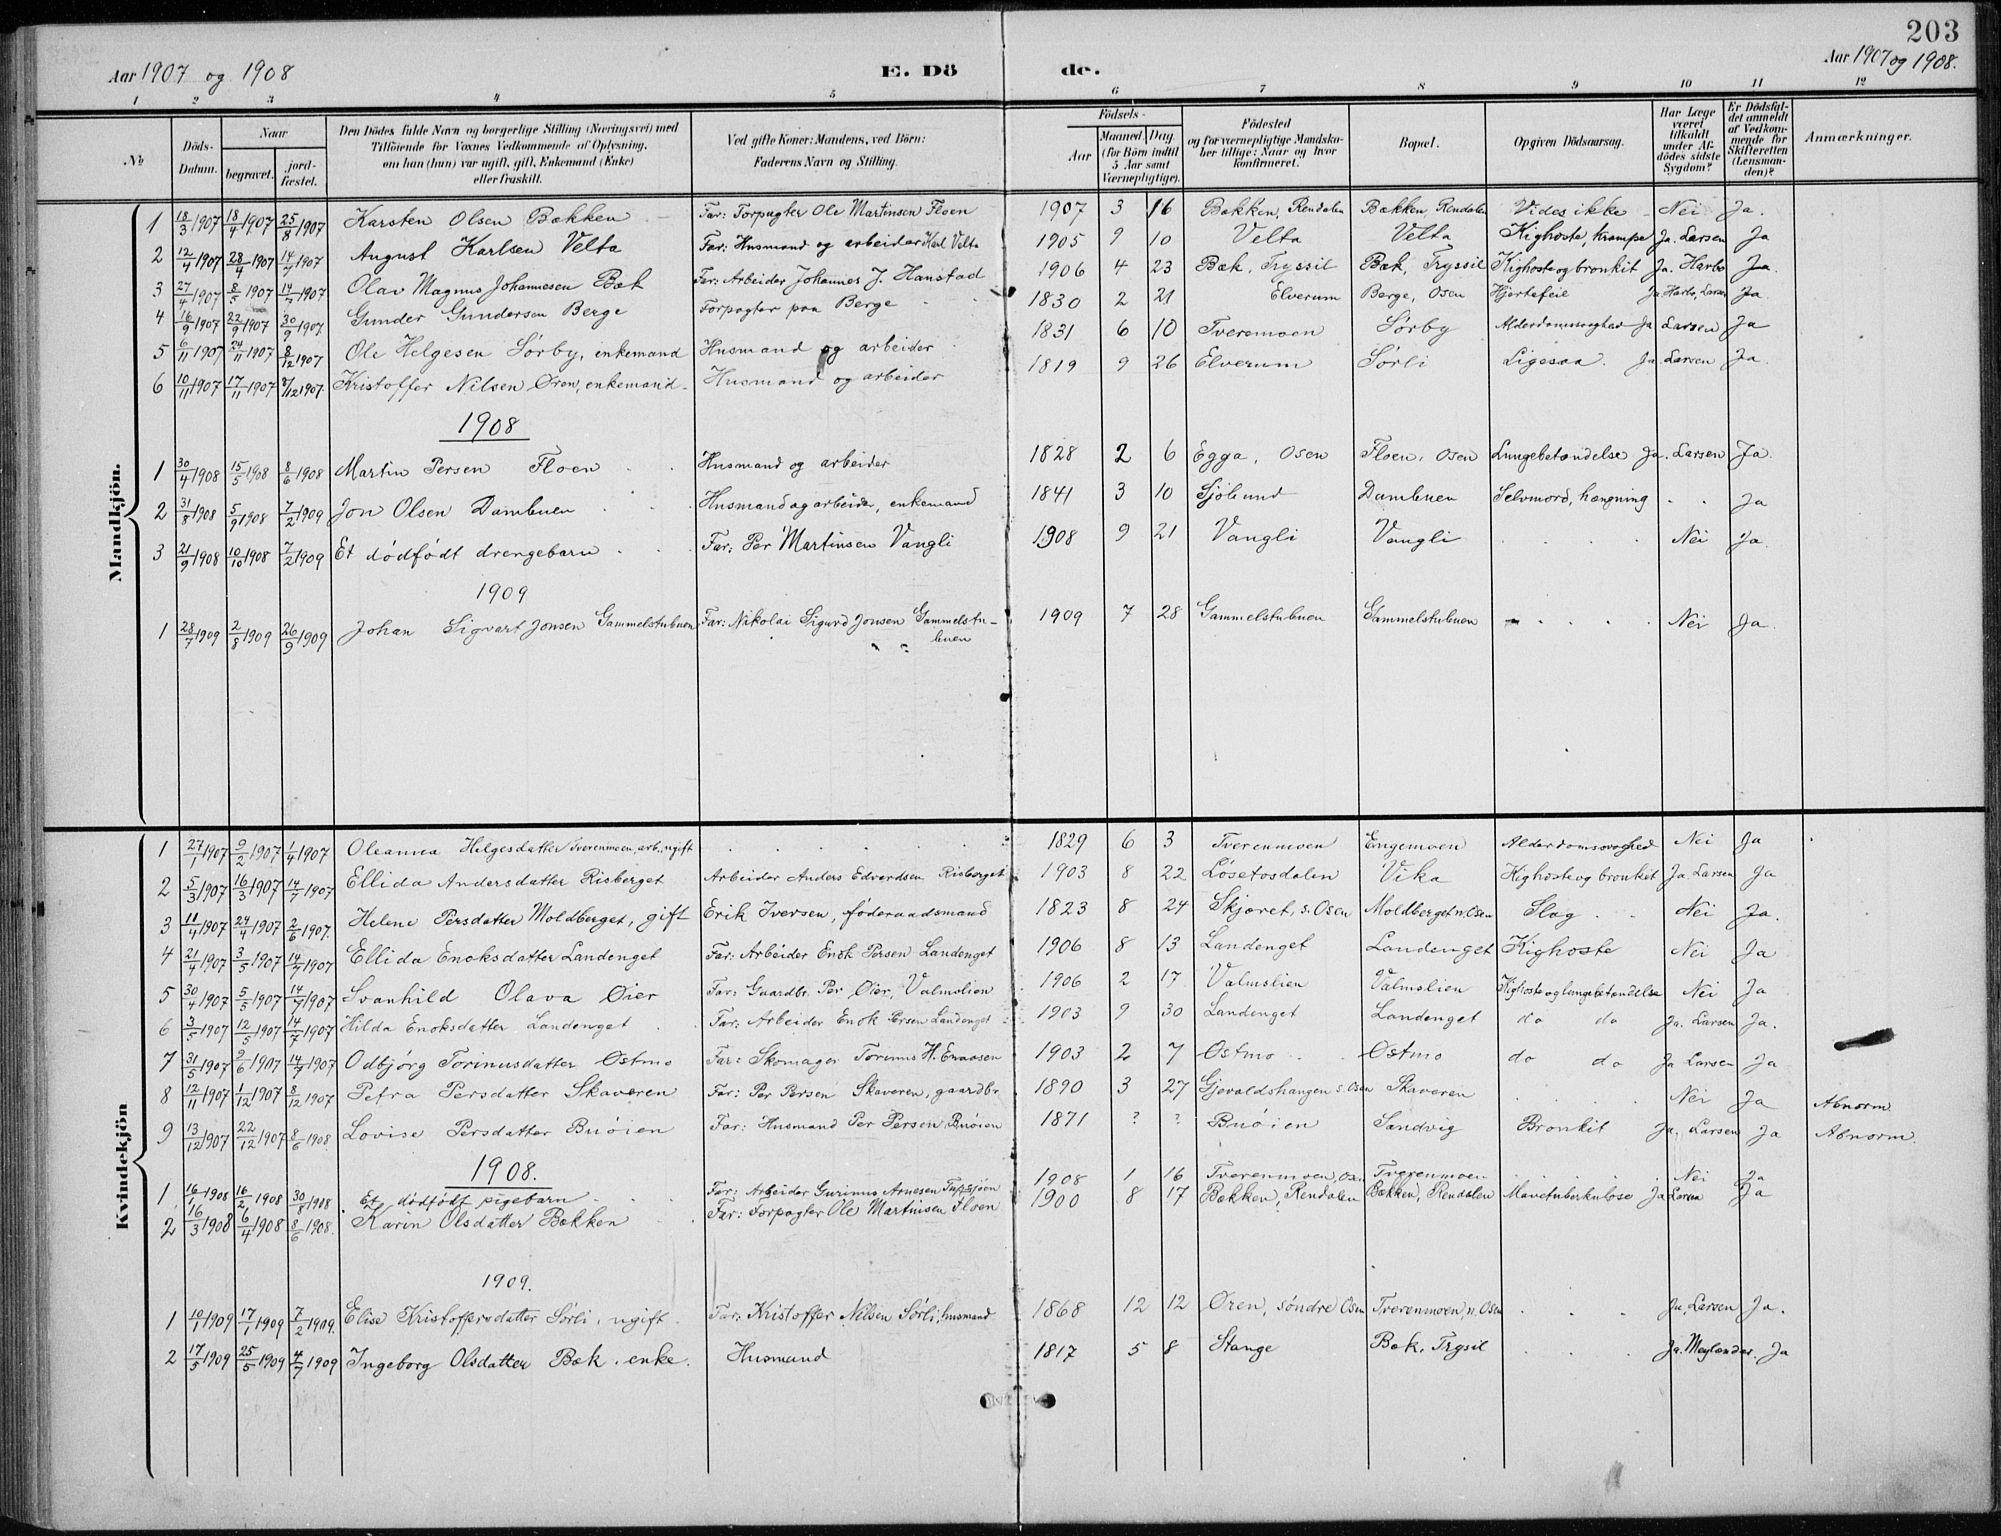 203
Aar 1907 og 1908 E. Dö de. Aar 1907 og 1908.
1 2 3 4 5 6 7 8 9 10 11 12
№ Döds-Datum. Naar begravet. jord-fæstet. Den Dödes fulde Navn og borgerlige Stilling (Næringsvei) med Tilföiende for Voxnes Vedkommende af Oplysning, om han (hun) var ugift, gift, Enkemand (Enke) eller fraskilt. Ved gifte Koner: Mandens, ved Börn: Faderens Navn og Stilling. Födsels- Aar Maaned. Dag. (for Börn indtil 5 Aar samt Værnepligtige). Födested og for værnepligtige Mandskaber tillige: Naar og hvor konfirmeret. Bopæl. Opgiven Dödsaarsag. Har Læge været tilkaldt under Afdödes sidste Sygdom? Er Dödsfaldet anmeldt af Vedkommende for Skifteretten (Lensmanden)? Anmærkninger.
Mandkjön.
1 18/3 1907 18/4 1907 25/8 1907 Karsten Olsen Bækken Far: Forpagter Ole Martinsen Floen 1907 3 16 Bækken, Rendalen Bækken, Rendalen Vides ikke Nei Ja.
2 12/4 1907 28/4 1907 14/7 1907 August Karlsen Velta Far: Husmand og arbeider Karl Velta 1905 9 10 Velta Velta Kighoste, krampe Ja. Larsen Ja
3 27/4 1907 8/5 1907 14/7 1907 Olav Magnus Johannesen Bæk Far: Arbeider Johannes J. Hanstad 1906 4 23 Bæk, Tryssil Bæk, Tryssil Kighoste og bronkit Ja. Harbo Ja.
4 16/9 1907 22/9 1907 30/9 1907 Gunder Gundersen Berge Forpagter paa Berge 1830 2 21 Elverum Berge, Osen Hjertefeil Ja Harbo, Larsen Ja
5 6/11 1907 24/11 1907 8/12 1907 Ole Helgesen Sörby, enkemand Husmand og arbeider 1831 6 10 Tveremoen Sörby Alderdomssvaghed Ja Larsen Ja
6 10/11 1907 17/11 1907 8/12 1907. Kristoffer Nilsen Øren, enkemand. Husmand og arbeider 1819 9 26 Elverum Sörli Ligesaa. Ja Larsen Ja.
1908
1 30/4 1908 15/5 1908 8/6 1908 Martin Persen Floen Husmand og arbeider 1828 2 6 Egga, Osen Floen, Osen Lungebetændelse Ja. Larsen Ja.
2 31/8 1908 5/9 1908 7/2 1909 Jon Olsen Dambuen Husmand og arbeider, enkemand 1841 3 10 Sjölund Dambuen Selvmord, hængning Ja
3 21/9 1908 10/10 1908 7/2 1909 Et dödfödt drengebarn Far: Per Martinsen Vangli 1908 9 21 Vangli Vangli Nei Ja.
1909
1 28/7 1909 2/8 1909 26/9 1909 Johan Sigvart Jonsen Gammelstubuen Far: Nikolai Sigurd Jonsen Gammelstu-
buen 1909 7 28 Gammelstubuen Gammelstubuen Nei Ja.
Kvindekjön
1 27/1 1907 9/2 1907 1/4 1907 Oleanna Helgesdatter Tverenmoen, arb., ugift 1829 6 3 Tverenmoen Engemoen Alderdomssvaghed Nei Ja
2 5/3 1907 16/3 1907 14/7 1907 Ellida Andersdatter Risberget Arbeider Anders Edvardsen Risberget 1903 8 22 Lösetosdalen Vika Kighoste og bronkit Ja Larsen Ja
3 11/4 1907 24/4 1907 2/6 1907. Helene Persdatter Moldberget, gift Erik Iversen, föderaadsmand 1823 8 24 Skjæret, s. Osen Moldberget n. Osen Slag Nei Ja.
4 21/4 1907 3/5 1907 14/7 1907 Ellida Enoksdatter Landenget Far: Arbeider Enok Persen Landenget 1906 8 13 Landenget Landenget Kighoste Nei Ja
5 30/4 1907 5/5 1907 14/7 1907 Svanhild Olava Øier Far: Gaardbr. Per Øier, Valmslien 1906 2 17 Valmslien Valmslien Kighoste og lungebetændelse Nei Ja
6 3/5 1907 12/5 1907 14/7 1907 Hilda Enoksdatter Landenget Far: Arbeider Enok Persen Landenget 1903 9 30 Landenget Landenget do do Ja. Larsen Ja.
7 31/5 1907 9/6 1907 14/7 1907 Odbjörg Torinusdatter Østmo Far: Skomager Torinus H. 1903 2 7 Ostmo Østmo do do Ja Larsen Ja
8 12/11 1907 1/12 1907 8/12 1907 Petra Persdatter Skaveren Far: Per Persen Skaveren, gaardbr. 1890 3 27 Gjevaldshaugen s. Osen Skaveren Nei Ja Abnorm
9 13/12 1907 22/12 1907 8/6 1908. Lovise Persdatter Buöien Far: Husmand Per Persen Buöien 1871 ? ? Buöien Sandvig Bronkit Ja. Larsen Ja Abnorm.
1908.
1 16/1 1908 16/2 1908 30/8 1908 Et dödfödt pigebarn Far: Arbeider Gurinus Arnesen 1908 1 16 Tverenmoen, Osen Tverenmoen Nei Ja
2 16/3 1908 6/4 1908 8/6 1908. Karin Olsdatter Bækken Far: Forpagter Ole Martinsen Floen 1900 8 17 Bækken, Rendalen Bækken, Rendalen Mavetuberkulose Ja Larsen Ja
1909.
1 10/1 1909 17/1 1909 7/2 1909. Elise Kristoffersdatter Sörli, ugift Far: Kristoffer Nilsen Sörli, husmand 1868 12 12 Øren, söndre Osen Tverenmoen, n. Osen Ja, Larsen Ja.
2 17/5 1909 25/5 1909 4/7 1909 Ingeborg Olsdatter Bæk, enke. Husmand 1817 5 8 Stange Bæk, Trysil Ja. Meylænder. Ja